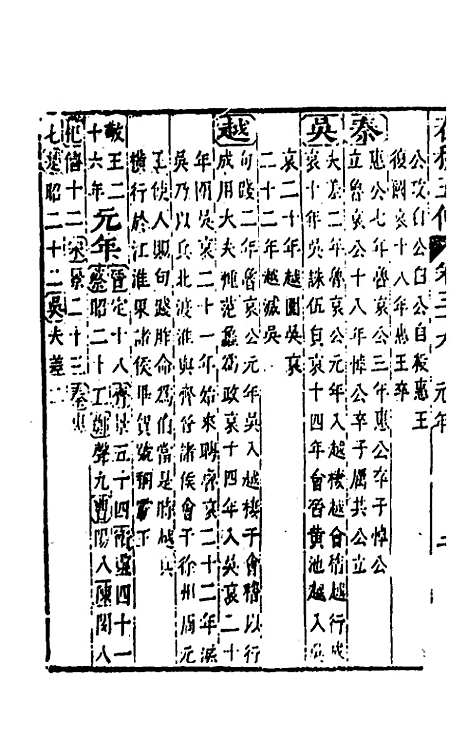 春秋五傳 第三六 元年
公攻白公白公自殺惠王
復國哀十八年惠王卒
秦 惠公七年魯哀公三年惠公卒子悼公
立魯哀公十八年悼公卒子厲共公立
吳 夫差二年魯哀公元年入越棲越會稽越行成
哀十年吳誅伍員哀十四年會晉黃池越入吳
哀二十年越圍吳哀
二十二年越滅吳
越 句踐二年魯哀公元年吳入越棲于會稽以行
成用大夫種范蠡為政哀十四年入吳哀二十
年圍吳哀二十一年始來聘魯哀二十二年滅
吳乃以兵北渡淮與齊晉諸侯會于徐州周元
王使人賜句踐胙命為伯當是時越兵
橫行於江淮東諸侯畢賀號稱霸王
敬王二十六年 元年 晉定十八 齊景五十四 衛靈四十一
蔡昭二十 鄭聲九 曹陽八 陳閔八
杞僖十二 宋景二十三 秦惠
七 楚昭二十二 吳夫差二